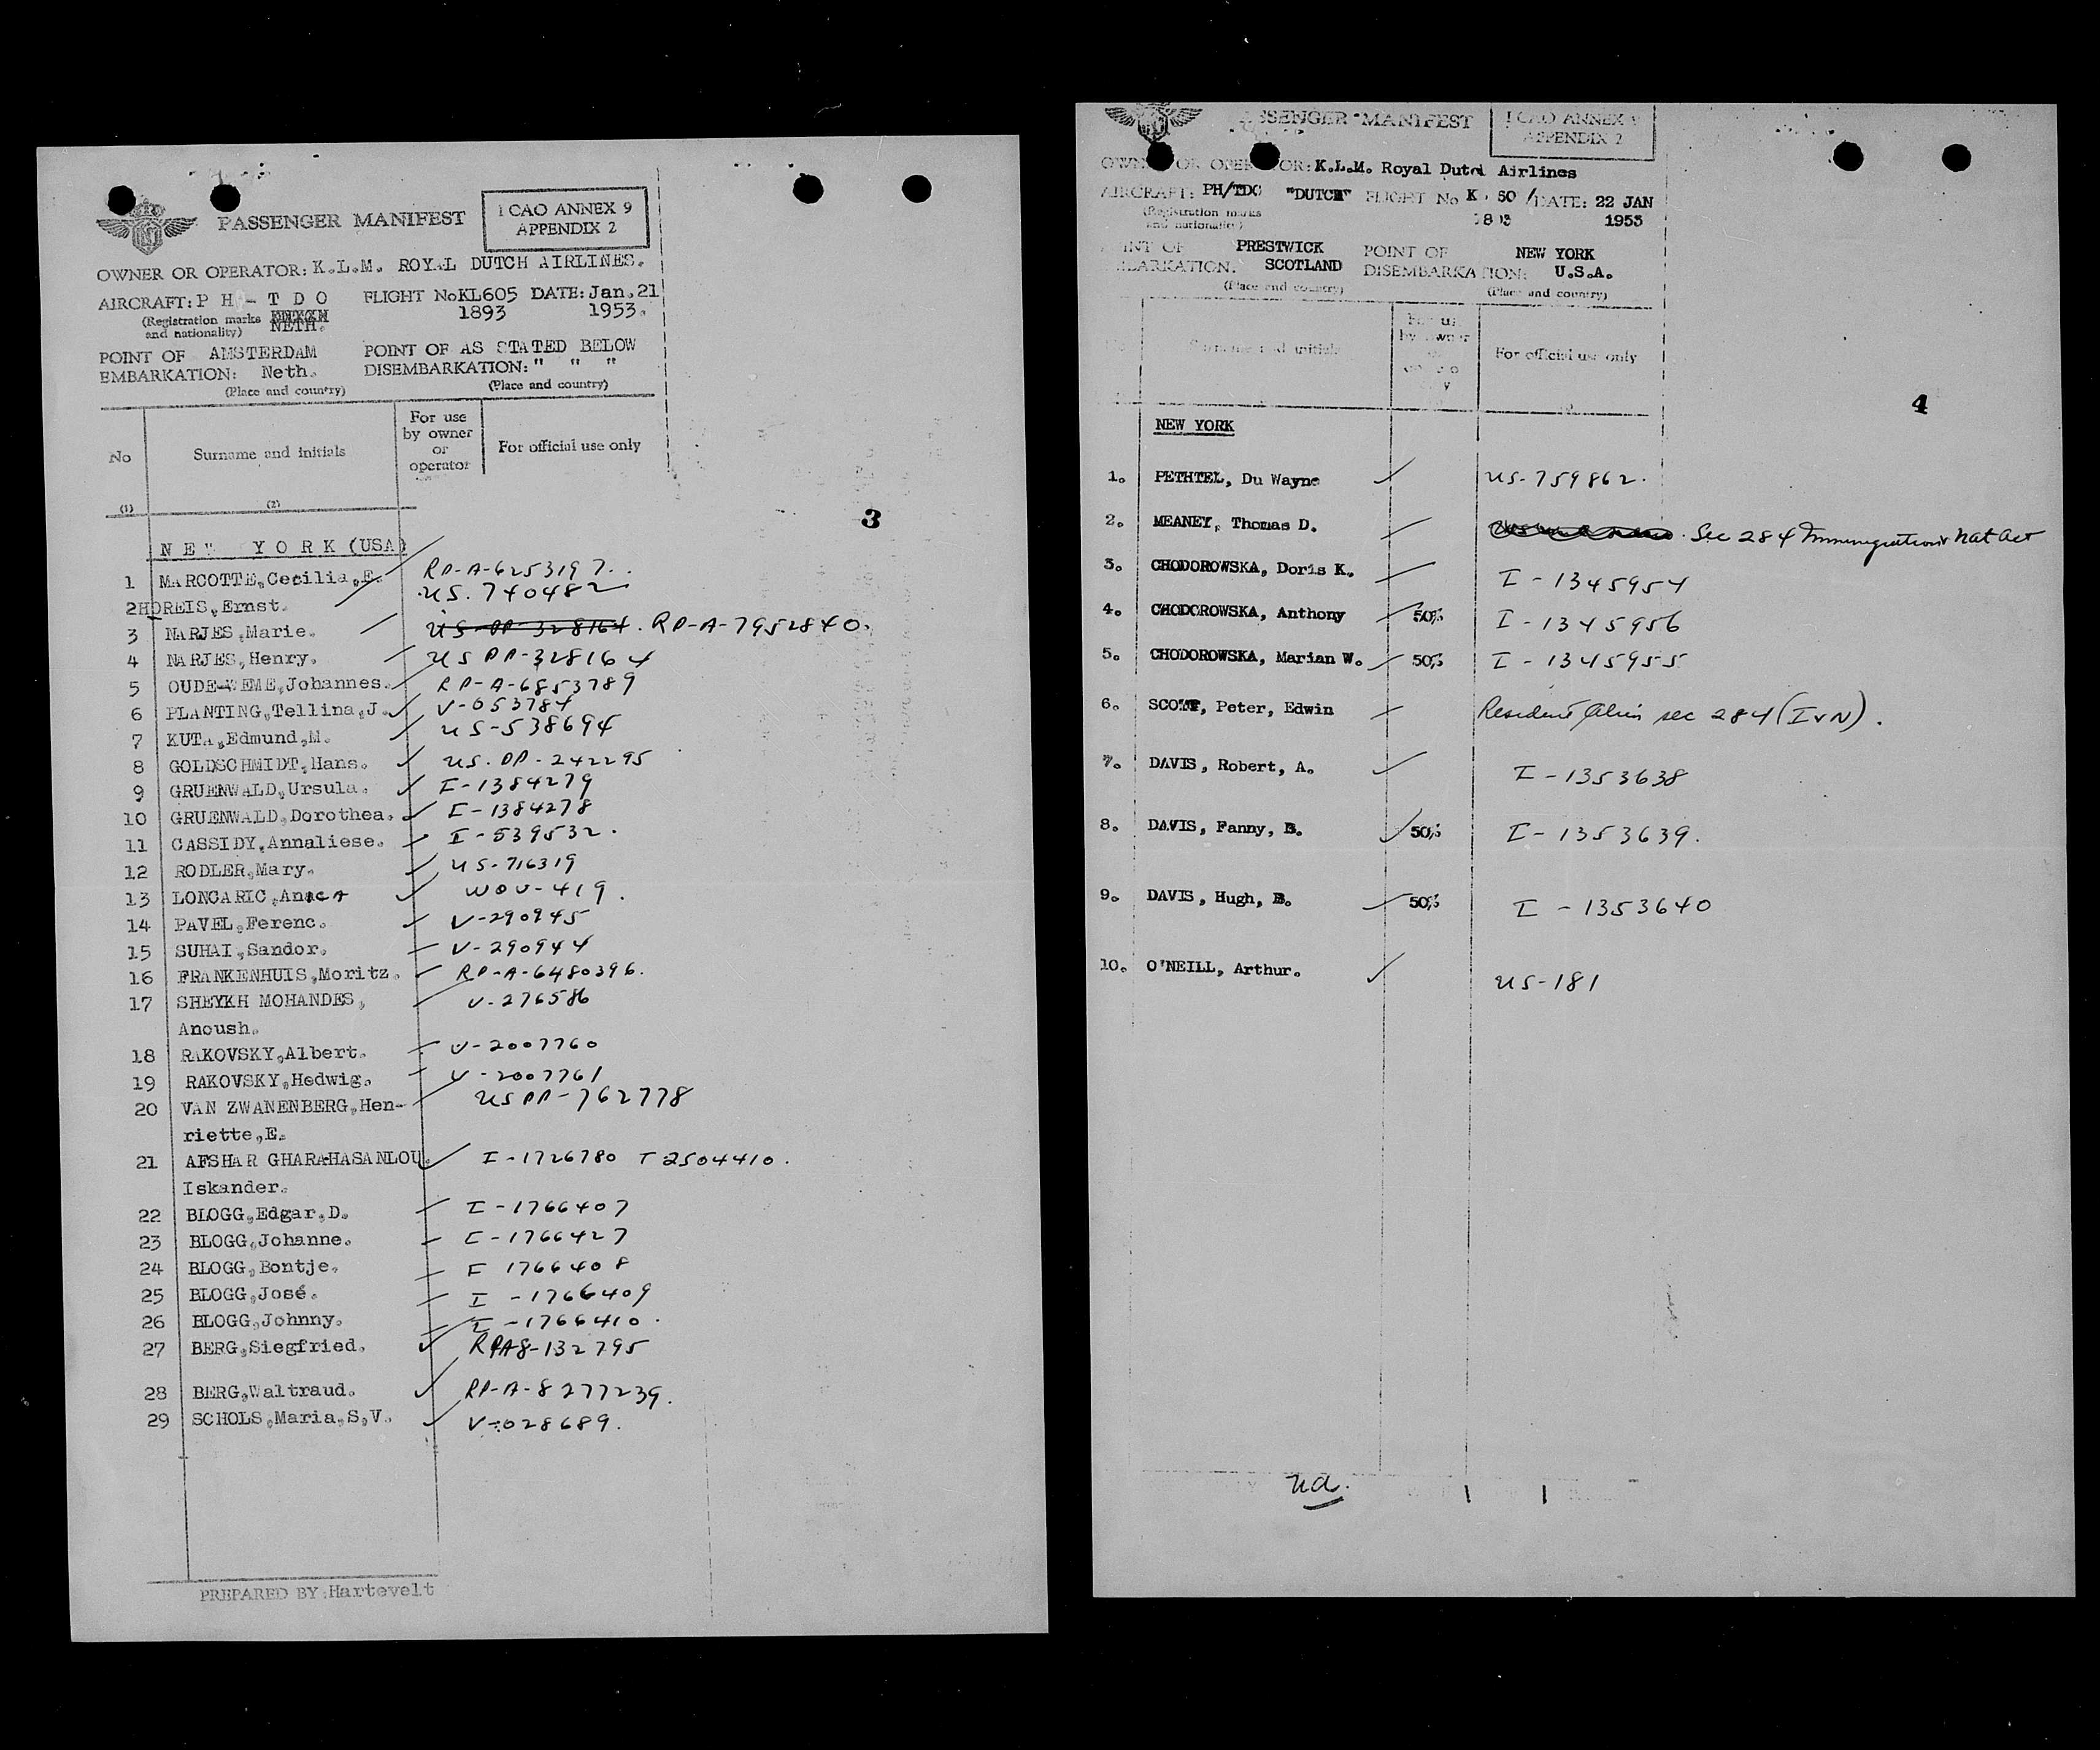 PASSENGER MANIFEST
I CAO ANNEX 9
APPENDIX 2
OWNER OR OPERATOR: K.L.M. ROYAL DUTCH AIRLINES.
AIRCRAFT: P H - T D O FLIGHT No KL605 DATE: Jan. 21
(Registration marks 1893 1953.
and nationality) NETH.
POINT OF AMSTERDAM POINT OF AS STATED BELOW
EMBARKATION: Neth. DISEMBARKATION: " " "
(Place and country) (Place and country)
No Surname and initials For use by owner or operator For official use only
(1) (2)
3
N E W Y O R K (USA)
1 MARCOTTE, Cecilia, E. RP-A-6253197.
2 HOREIS, Ernst. US. 740482
3 NARJES, Marie. US-PP-328164. RP-A-7952840.
4 NARJES, Henry. US PP-328164
5 OUDE-WEME, Johannes. RP-A-6853789
6 PLANTING, Tellina, J. V-053784
7 KUTA, Edmund, M. US-538694
8 GOLDSCHMIDT, Hans. US. PP-242295
9 GRUENWALD, Ursula. I-1384279
10 GRUENWALD, Dorothea. I-1384278
11 CASSIDY, Annaliese. I-539532.
12 RODLER, Mary. US-716319
13 LONCARIC, Anica WOV-419.
14 PAVEL, Ferenc. V-290945
15 SUHAI, Sandor. V-290944
16 FRANKENHUIS, Moritz. RP-A-6480396.
17 SHEYKH MOHANDES, V-276586
Anoush.
18 RAKOVSKY, Albert. V-2007760
19 RAKOVSKY, Hedwig. V-2007761
20 VAN ZWANENBERG, Hen- US PP-762778
riette, E.
21 AFSHAR GHARAHASANLOU, I-1726780 T 2504410.
Iskander.
22 BLOGG, Edgar, D. I-1766407
23 BLOGG, Johanne. I-1766427
24 BLOGG, Bontje. I 1766408
25 BLOGG, José. I-1766409
26 BLOGG, Johnny. I-1766410.
27 BERG, Siegfried. RPA8-132795
28 BERG, Waltraud. RP-A-8277239.
29 SCHOLS, Maria, S, V. V-028689.
PREPARED BY: Hartevelt
PASSENGER MANIFEST
I CAO ANNEX 9
APPENDIX 2
OWNER OR OPERATOR: K.L.M. Royal Dutch Airlines
AIRCRAFT: PH/TDO "DUTCH" FLIGHT No K 60 / DATE: 22 JAN
(Registration marks 1893 1953
and nationality)
POINT OF PRESTWICK POINT OF NEW YORK
EMBARKATION. SCOTLAND DISEMBARKATION: U.S.A.
(Place and country) (Place and country)
Surname and initials For official use only
4
NEW YORK
1. PETHTEL, Du Wayne US-759862.
2. MEANEY, Thomas D. Sec 284 Immigration & Nat Act
3. CHODOROWSKA, Doris K. I-1345954
4. CHODOROWSKA, Anthony 50% I-1345956
5. CHODOROWSKA, Marian W. 50% I-1345955
6. SCOTT, Peter, Edwin Resident Alien sec 284 (I & N).
7. DAVIS, Robert, A. I-1353638
8. DAVIS, Fanny, B. 50% I-1353639.
9. DAVIS, Hugh, B. 50% I-1353640
10. O'NEILL, Arthur. US-181